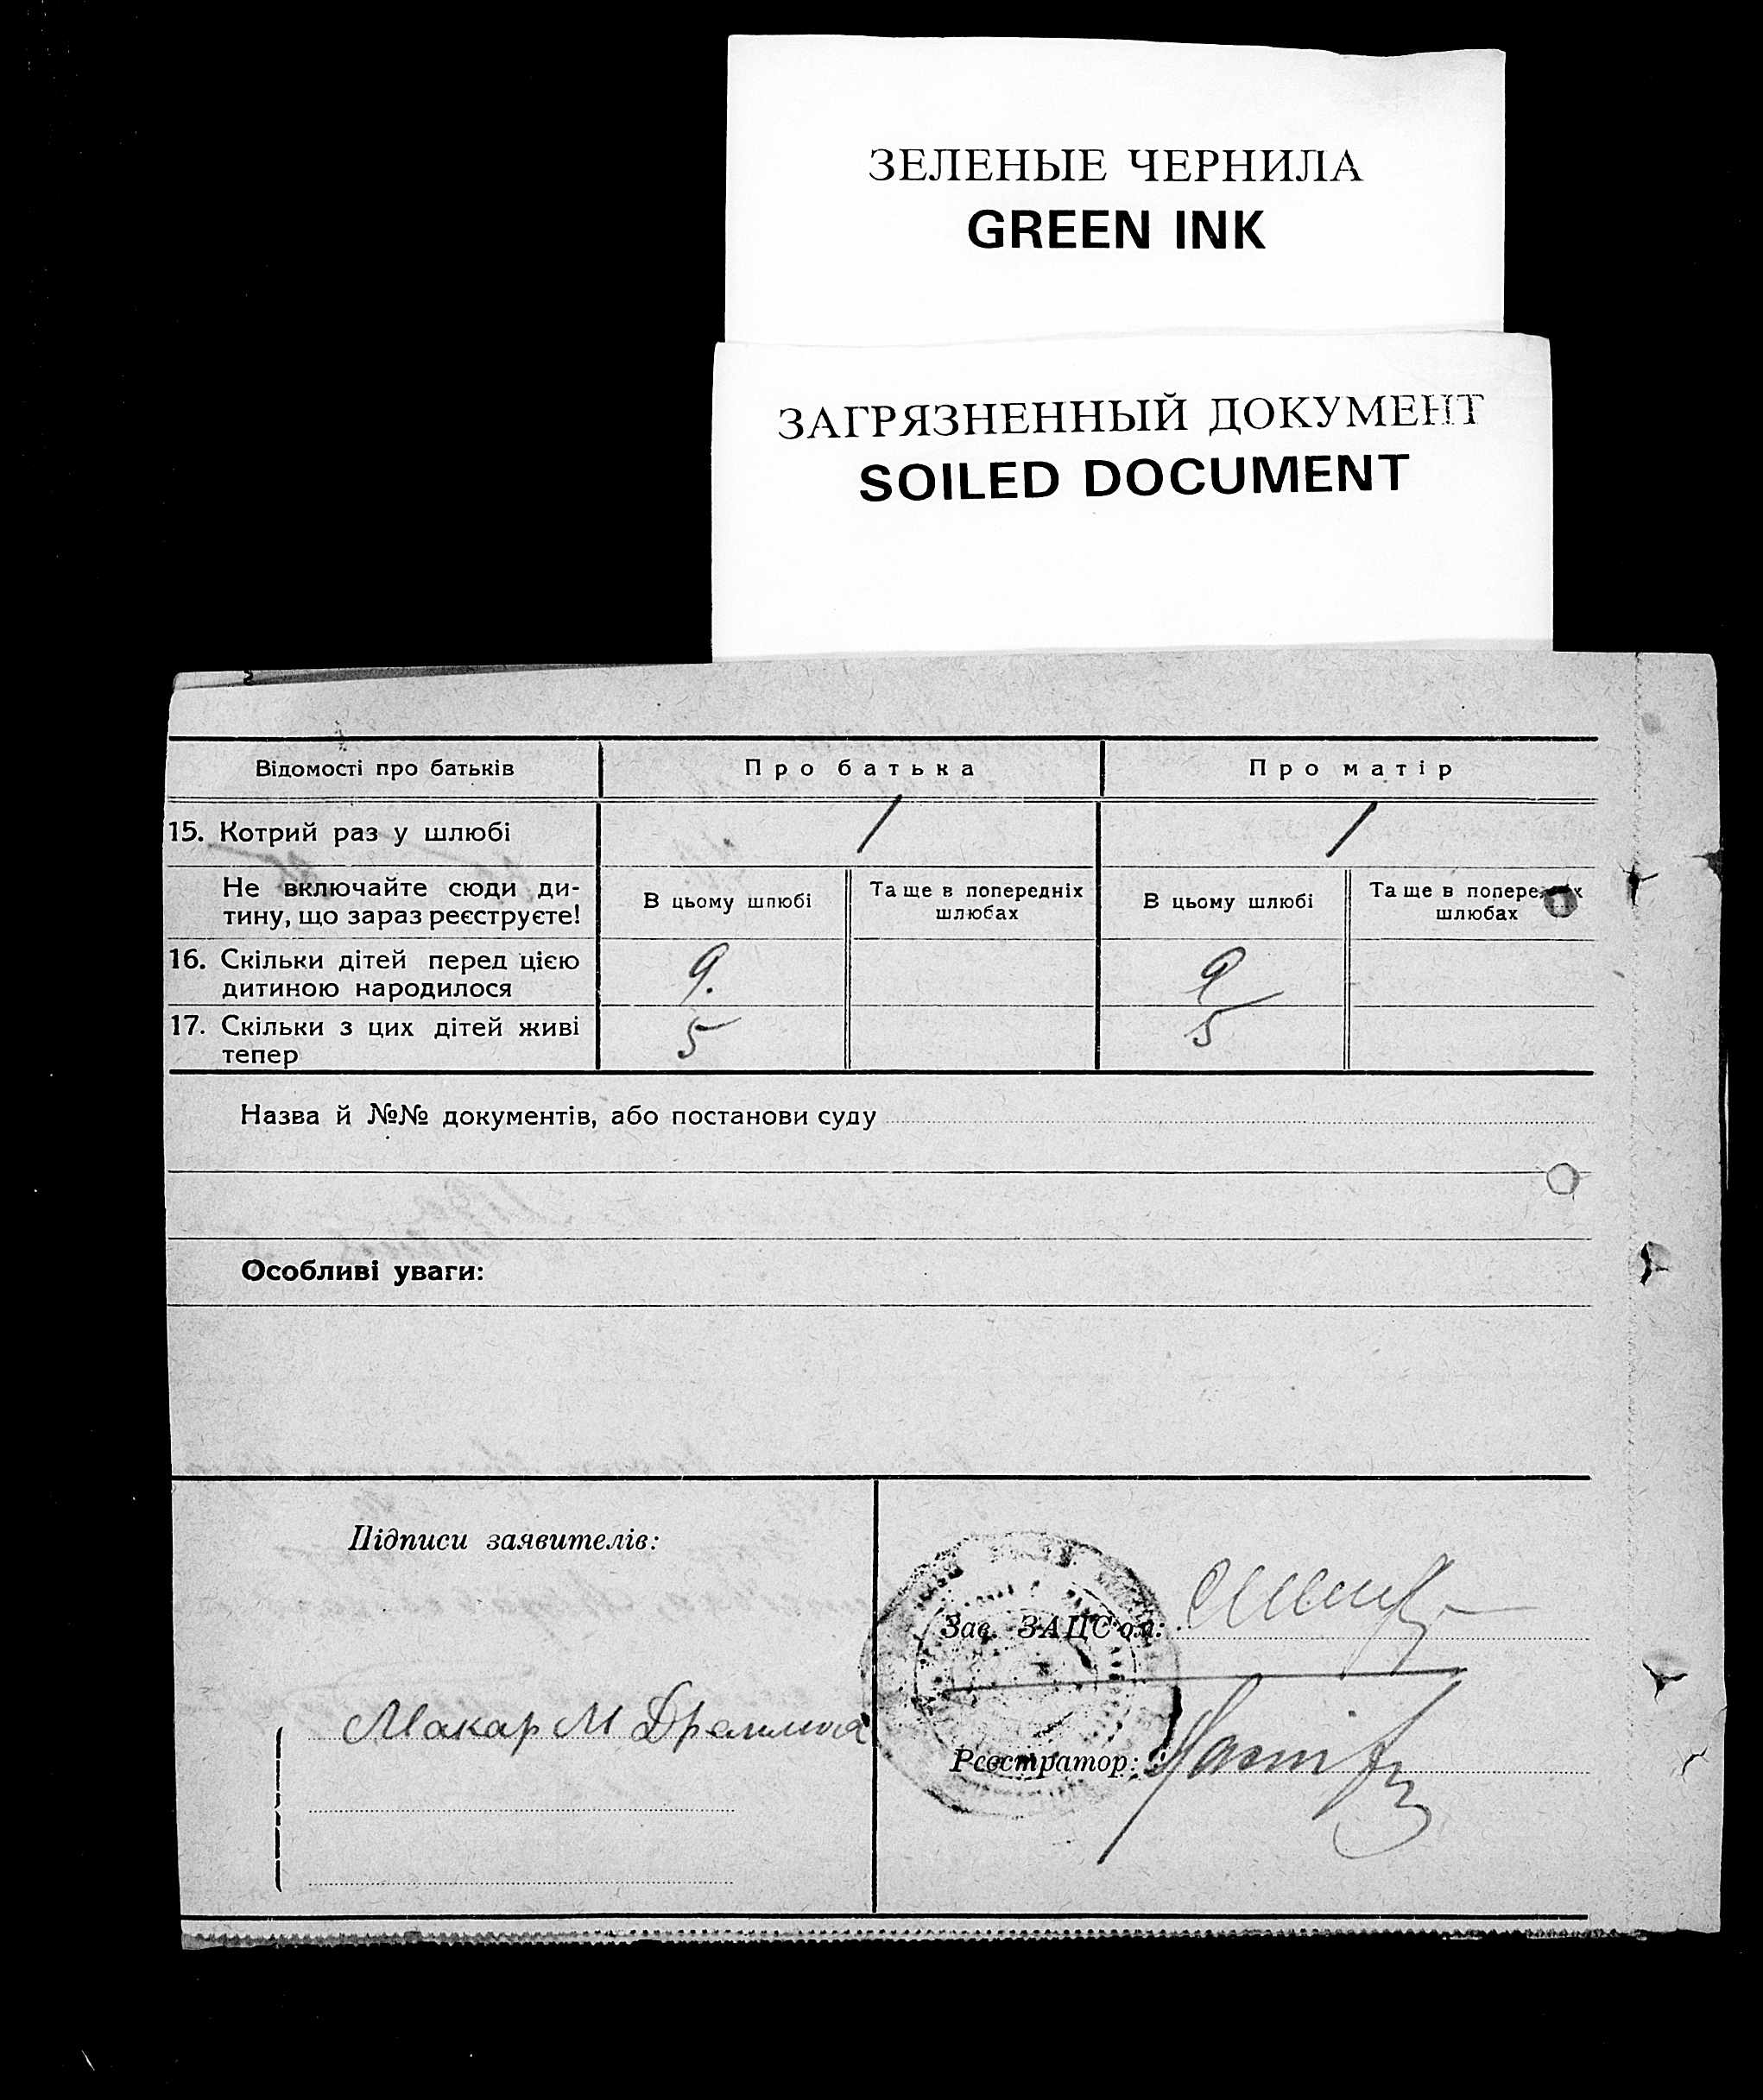 ЗЕЛЕНЫЕ ЧЕРНИЛА
GREEN INK
ЗАГРЯЗНЕННЫЙ ДОКУМЕНТ
SOILED DOCUMENT
Відомості про батьків
Про батька
Про матір
15. Котрий раз у шлюбі
1
1
Не включайте сюди ди-
тину, що зараз реєструєте!
В цьому шлюбі
Та ще в попередніх
шлюбах
В цьому шлюбі
Та ще в попередніх
шлюбах
16. Скільки дітей перед цією
дитиною народилося
9.
9
17. Скільки з цих дітей живі
тепер
5
5
Назва й №№ документів, або постанови суду
Особливі уваги:
Підписи заявителів:
Зав. ЗАЦС'ом:
Макар М
Реєстратор: